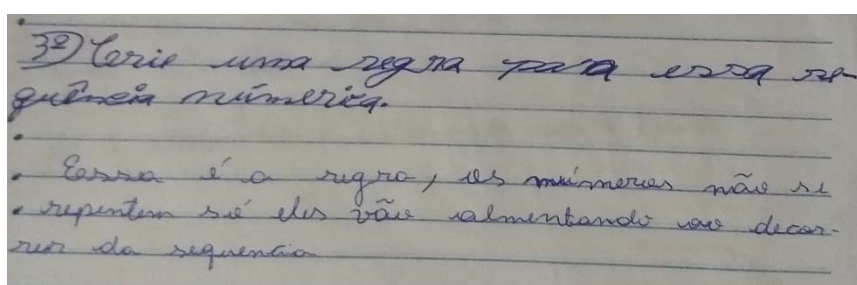 3º) Crie uma regra para essa se-
quência númerica.
Essa é a regra, os números não se
repentem só eles vão almentando ao decor-
rer da sequencia